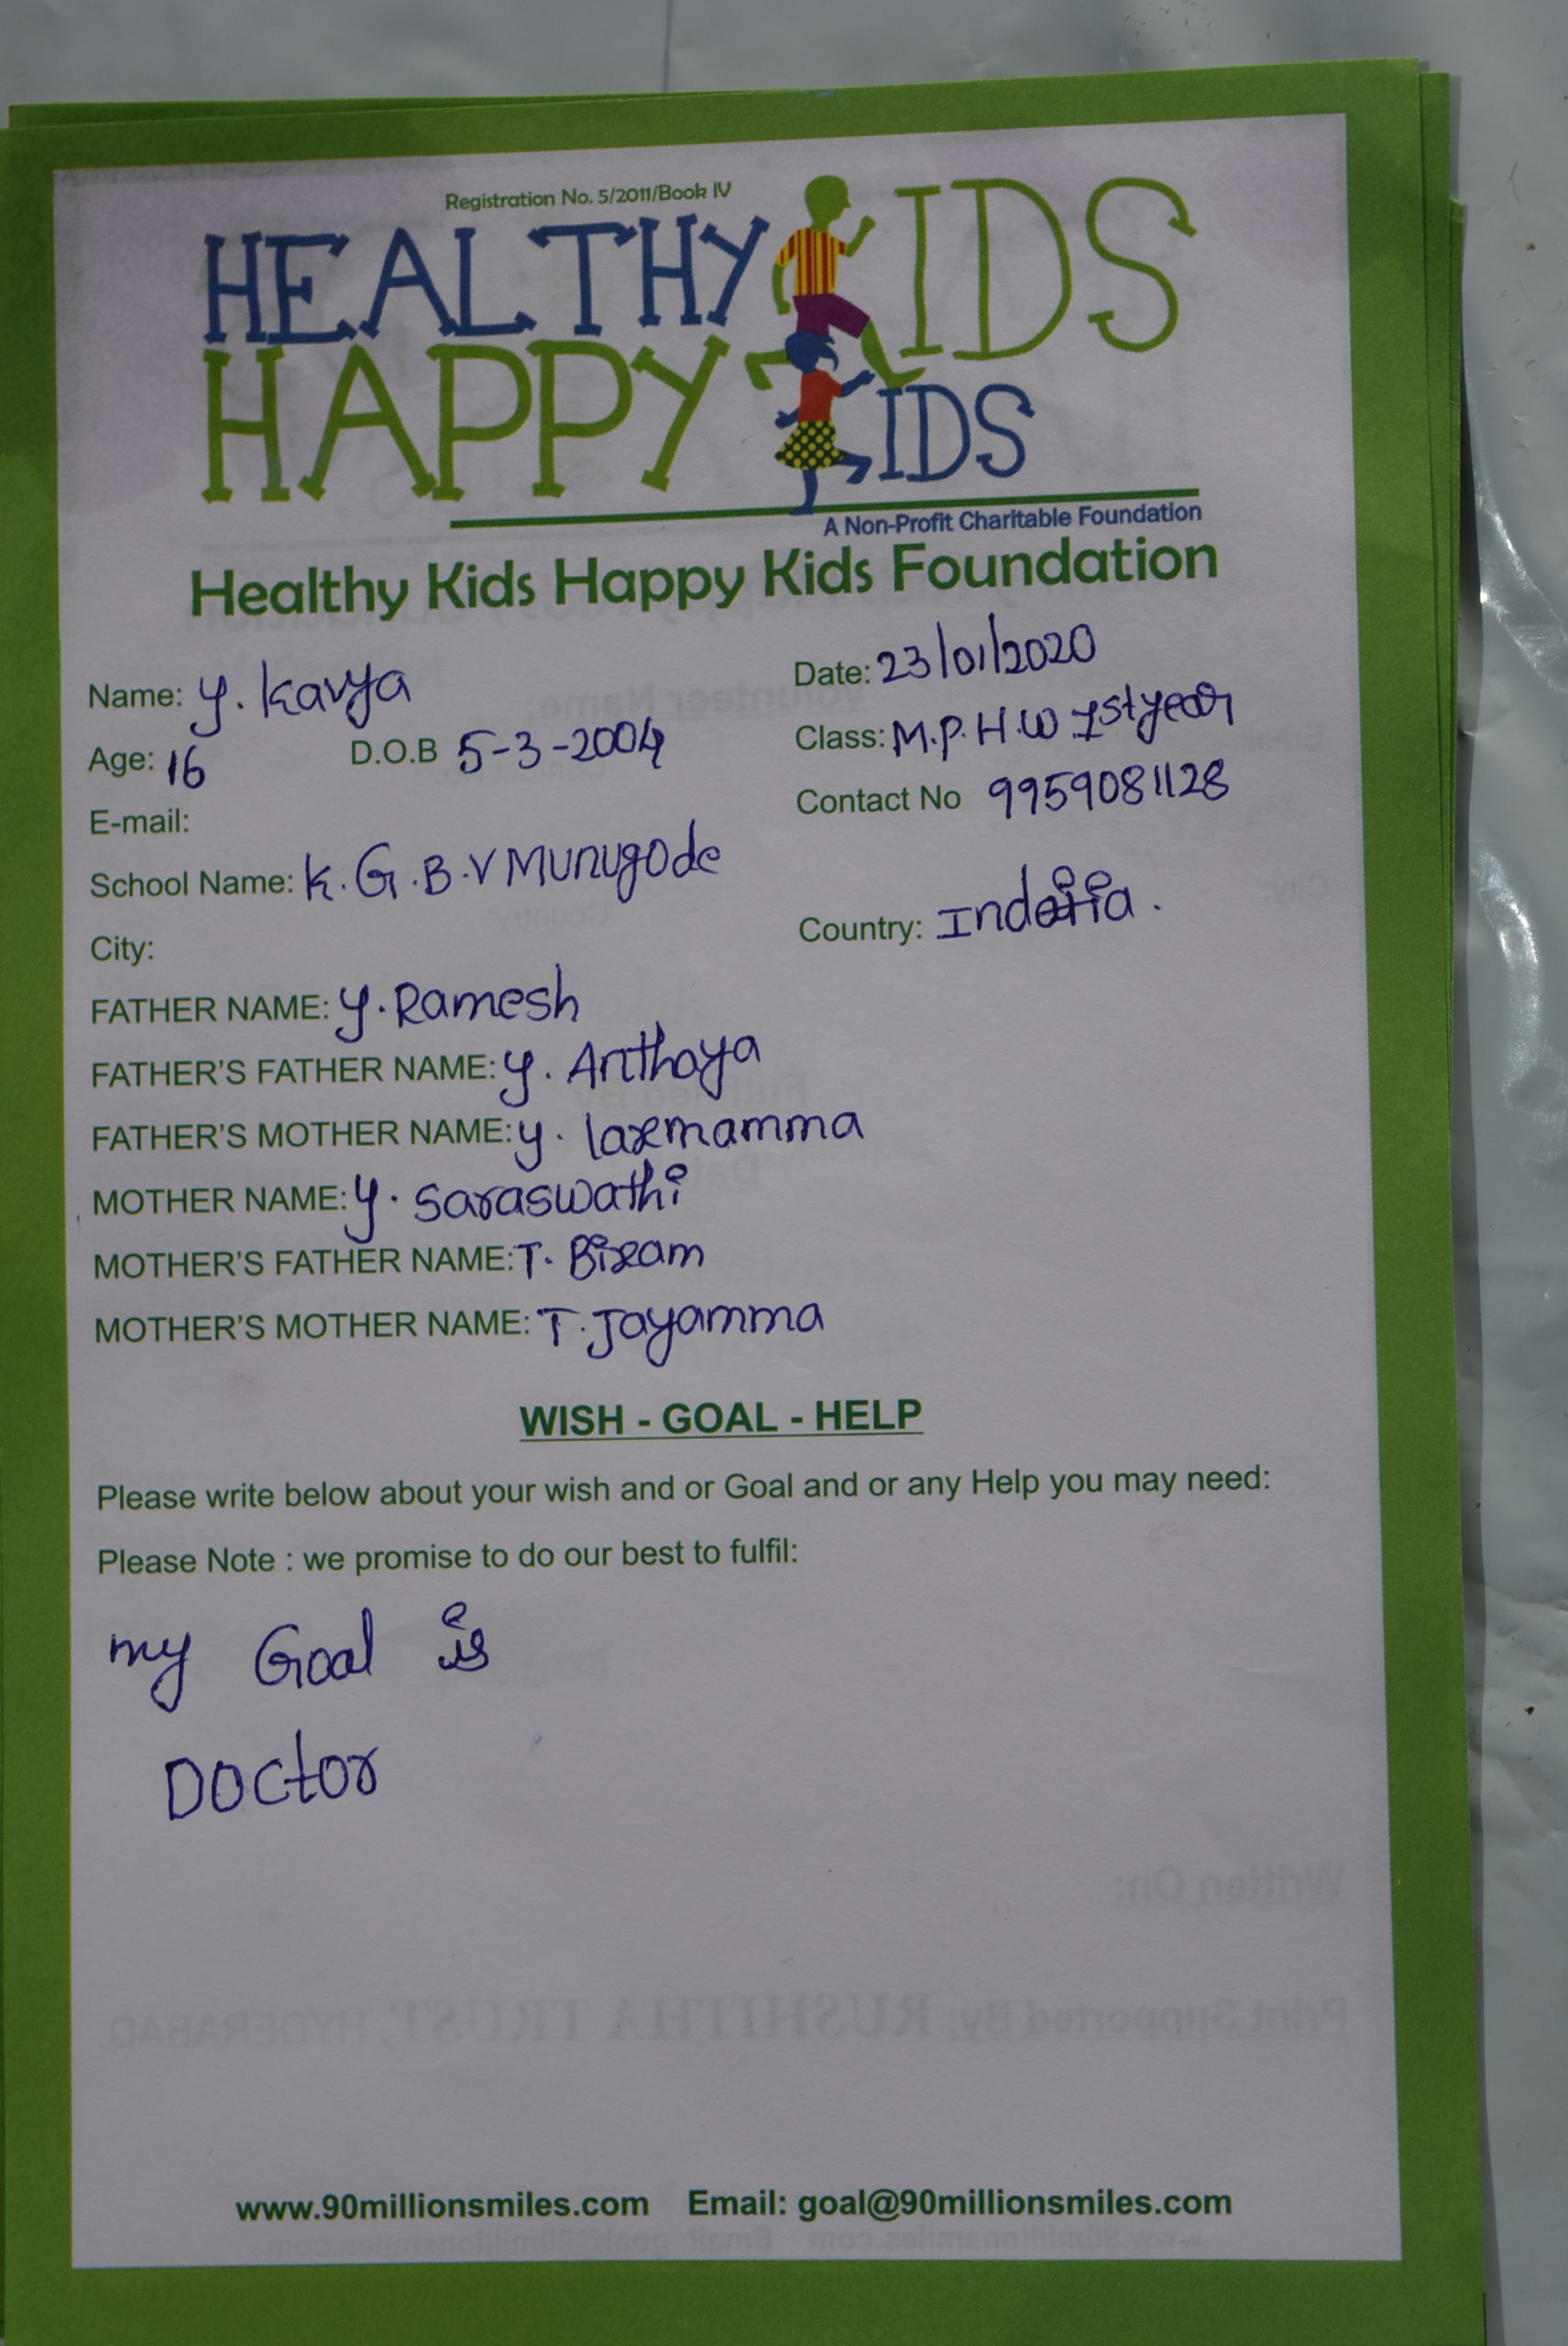 Registration No. 5/2011/Book IV
HEALTHY KIDS
HAPPY KIDS
A Non-Profit Charitable Foundation
Healthy Kids Happy Kids Foundation
Name: y. kavya Date: 23/01/2020
Age: 16 D.O.B 5-3-2004 Class: M.P.H.W Ist year
E-mail: Contact No 9959081128
School Name: K.G.B.V Munugode
City: Country: India.
FATHER NAME: y. Ramesh
FATHER'S FATHER NAME: y. Anthaya
FATHER'S MOTHER NAME: y. laxmamma
MOTHER NAME: y. saraswathi
MOTHER'S FATHER NAME: T.
MOTHER'S MOTHER NAME: T. Jayamma
WISH - GOAL - HELP
Please write below about your wish and or Goal and or any Help you may need:
Please Note : we promise to do our best to fulfil:
my Goal is
Doctor
Written On:
Print Supported By: RUSHITHA TRUST, HYDERABAD.
www.90millionsmiles.com Email: goal@90millionsmiles.com